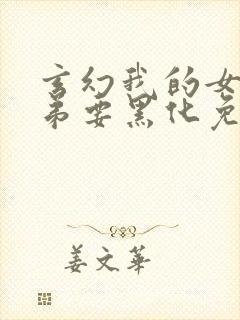 玄幻我的女
弟要黑化免
姜文華